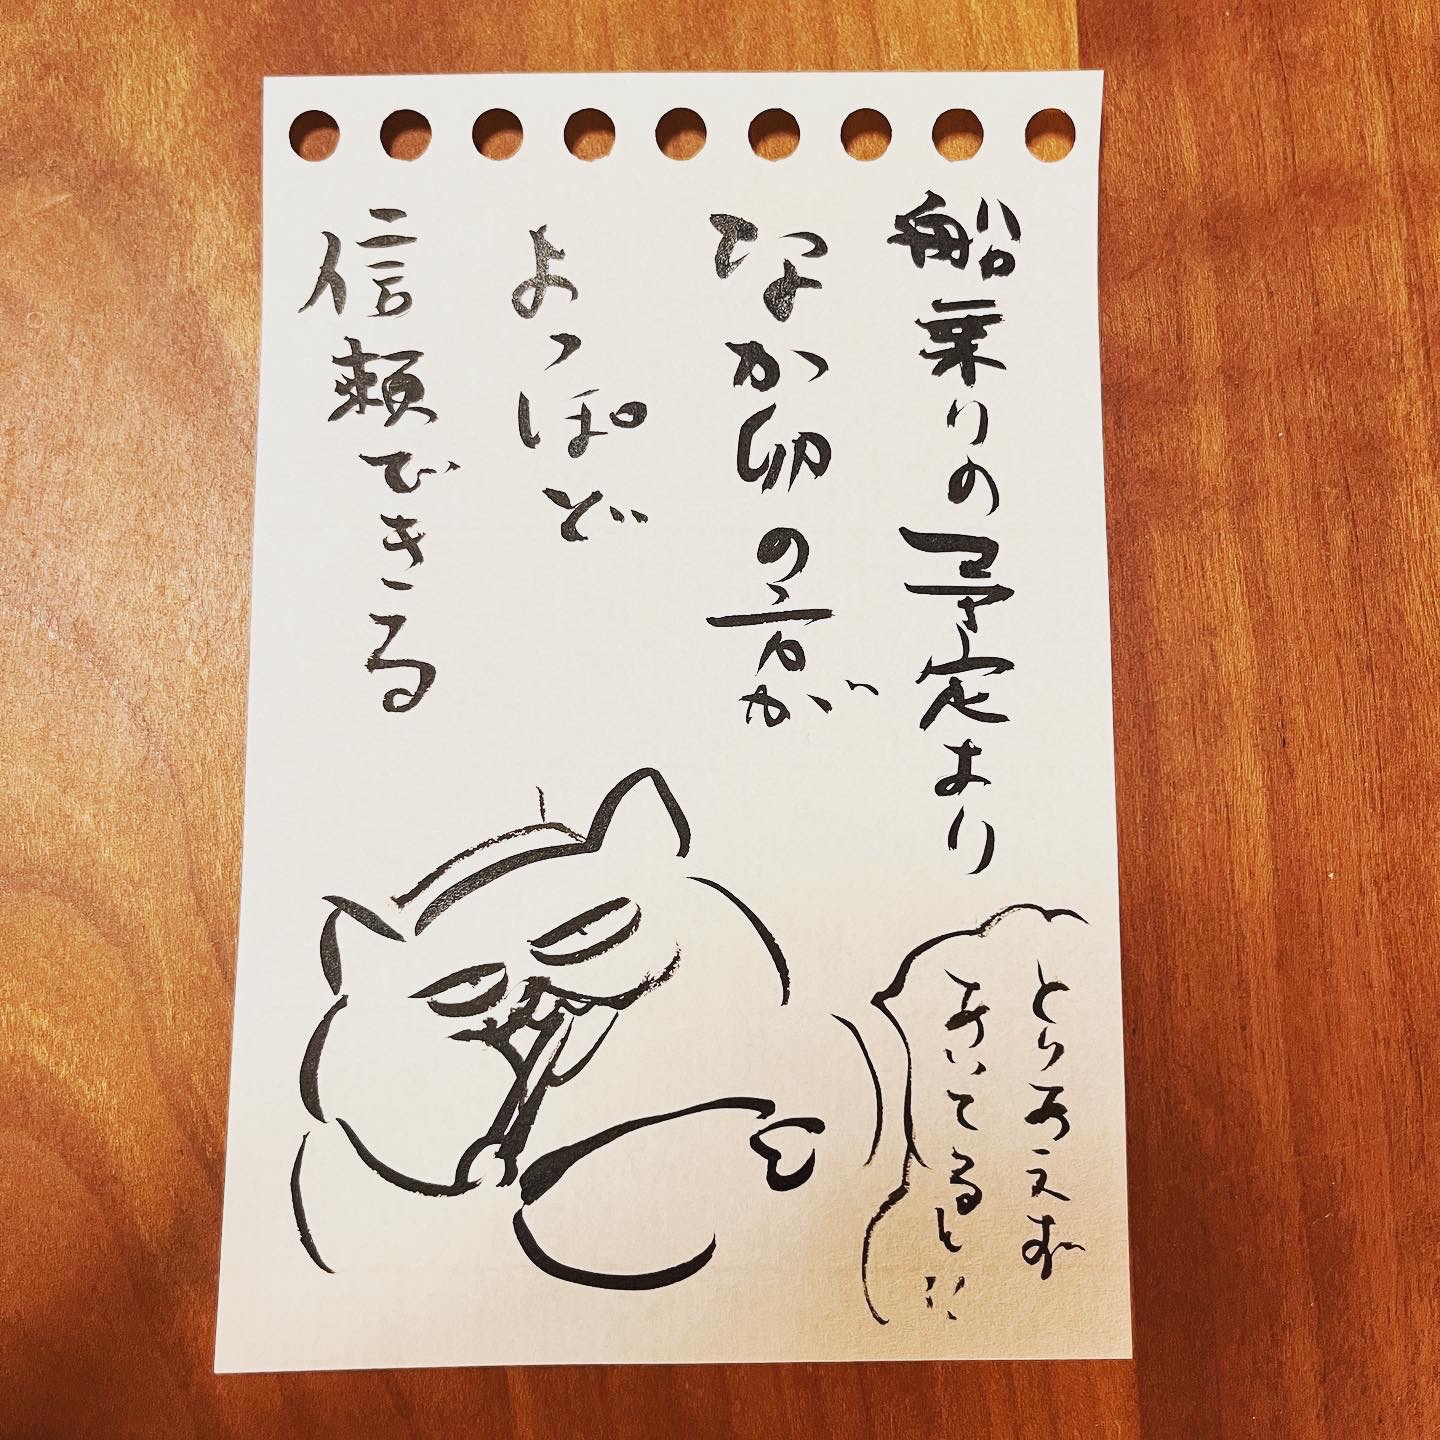 船乗りの予定より
なか卯の方が
よっぽど
信頼できる
とりあえず
あいてるし!!